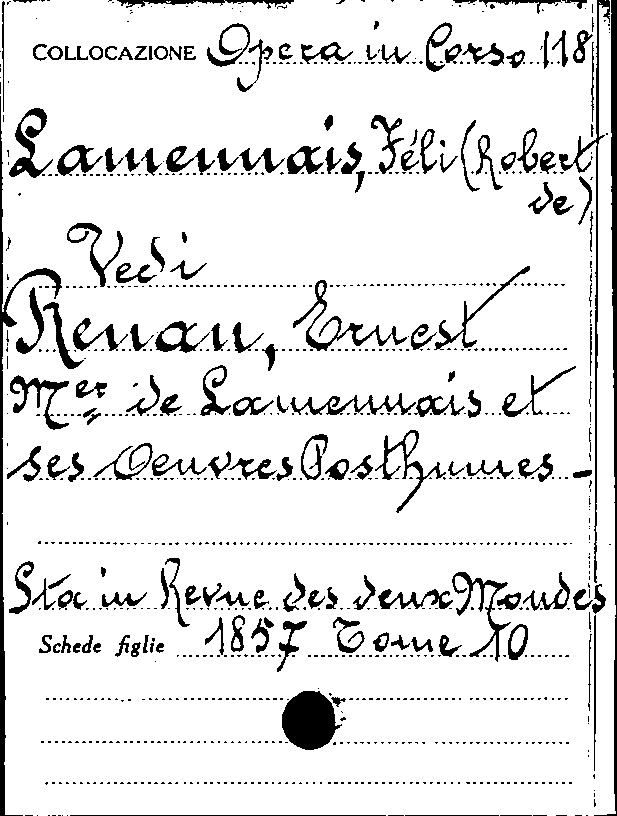 COLLOCAZIONE Opera in Corso 118
Lamennais, Féli (Robert
de)
Vedi
Renan, Ernest
Mer de Lamennais et
ses Oeuvres Posthumes -
Sta in Revue des deux Mondes
Schede figlie 1857 Tome 10